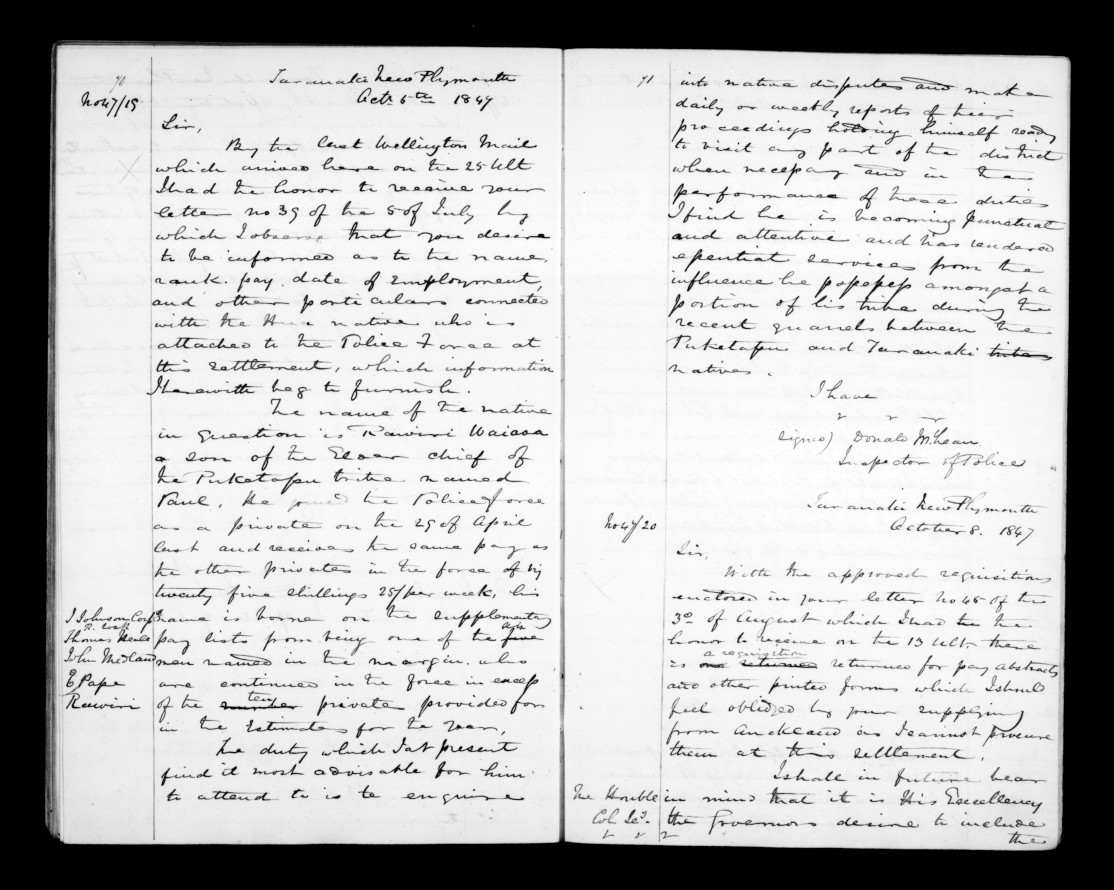 70
Taranaki New Plymouth
No 47/19
Octr 6th 1847
Sir,
By the last Wellington Mail
which arrived here on the 25 Ult
I had the honor to receive your
letter no 39 of the 5 of July by
which I observe that you desire
to be informed as to the name,
rank. pay. date of employment,
and other particulars connected
with the native who is
attached to the Police Force at
this settlement, which information
I herewith beg to furnish.
The name of the native
in question is Rawiri Waiaua
a son of the Elder chief of
the Puketapu tribe named
Paul, He joined the Police force
as a private on the 29 of April
last and receives the same pay as
the other privates in the force of by
twenty five shillings 25/ per week, his
name is borne on the supplementary
pay lists from being one of the five
men named in the margin. who
are continued in the force in excess
of the number ten privates provided for
in the Estimates for the Year,
J Johnson Corpl
Thomas
John Medland
E Pape
Rawiri
The duty which I at present
find it most advisable for him
to attend to is to enquire
71
into native disputes and make
daily or weekly reports of their
proceedings holding himself ready
to visit any part of the district
when necessary and in the
performance of these duties
I find he is becoming punctual
and attentive and has rendered
essential services from the
influence he possesses amongst a
portion of his tribe during the
recent quarrels between the
Puketapu and Taranaki tribes
natives.
I have
signed) Donald McLean
Inspector of Police
Taranaki New Plymouth
No 47/20
October 8. 1847
Sir,
With the approved requisitions
enclosed in your letter No 45 of the
3d of August which I had the
honor to receive on the 13 Ult. there
a requisition
is one returned returned for pay abstracts
and other printed forms which I should
feel obliged by your supplying
from Auckland as I cannot procure
them at this settlement.
I shall in future bear
in mind that it is His Excellency
the Governors desire to include
the
The Honble
Col Secy.